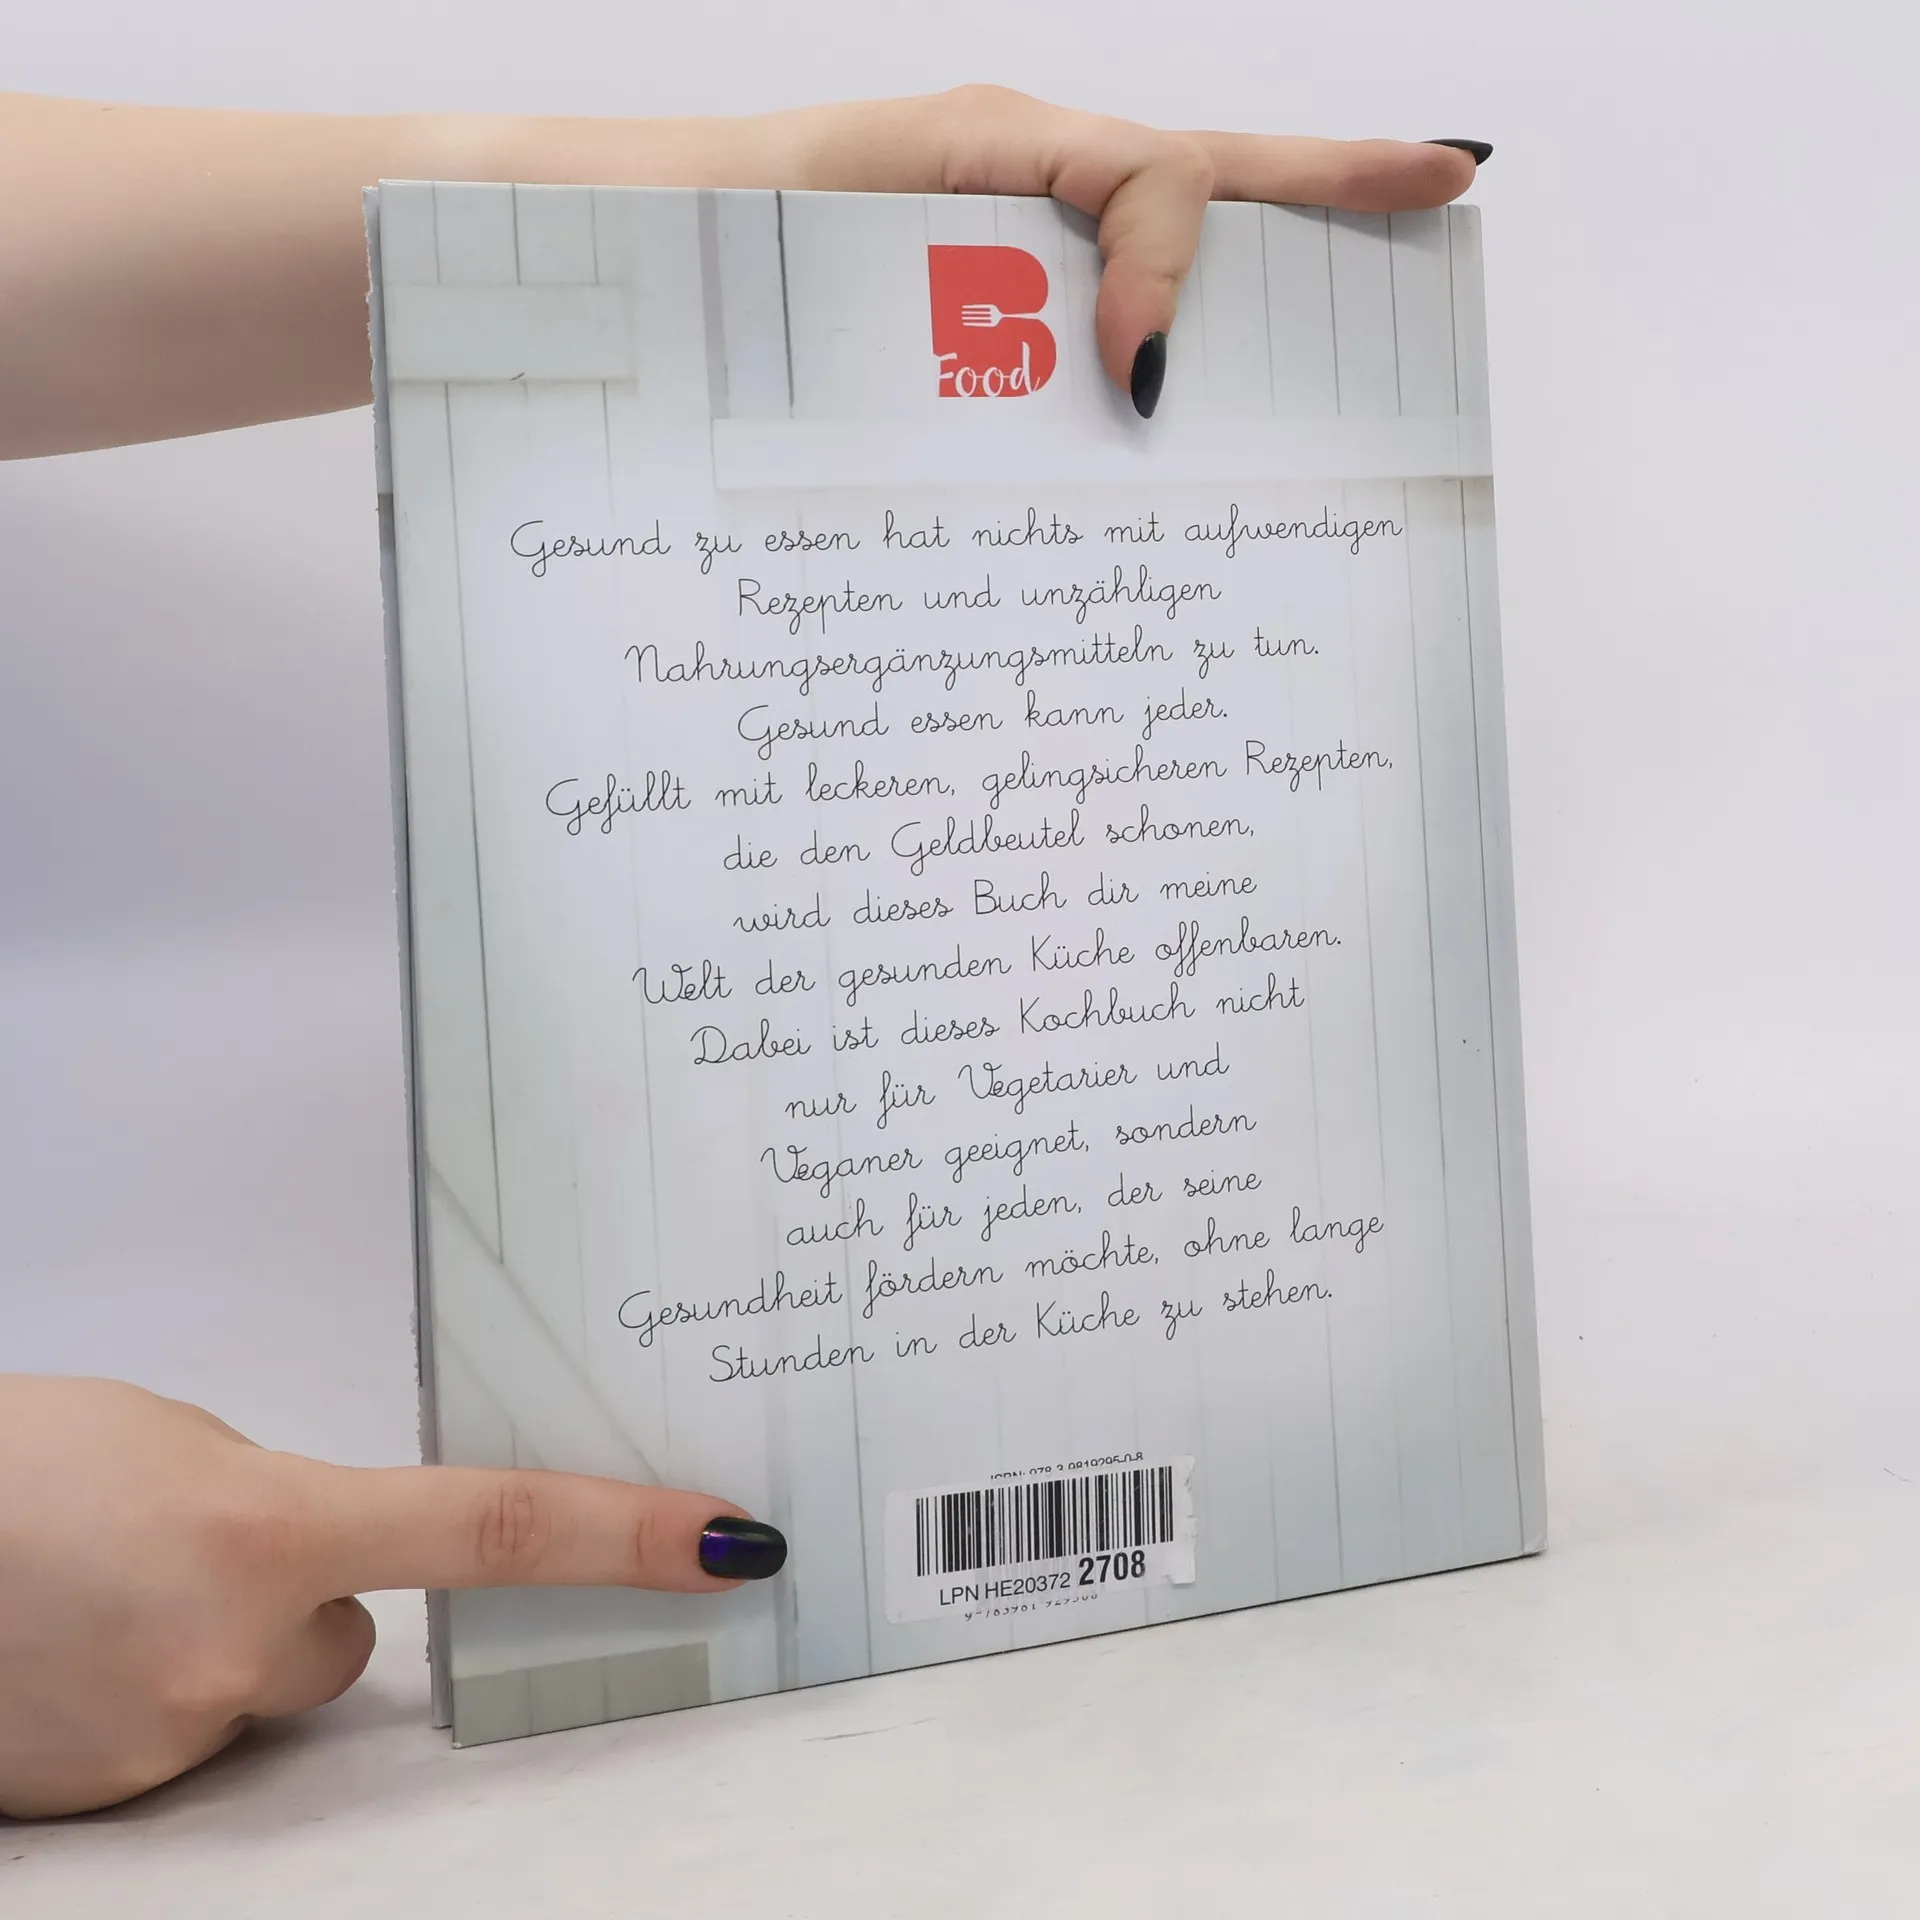 B
Food
Gesund zu essen hat nichts mit aufwendigen
Rezepten und unzähligen
Nahrungsergänzungsmitteln zu tun.
Gesund essen kann jeder.
Gefüllt mit leckeren, gelingsicheren Rezepten,
die den Geldbeutel schonen,
wird dieses Buch dir meine
Welt der gesunden Küche offenbaren.
Dabei ist dieses Kochbuch nicht
nur für Vegetarier und
Veganer geeignet, sondern
auch für jeden, der seine
Gesundheit fördern möchte, ohne lange
Stunden in der Küche zu stehen.
ISBN: 978-3-9819295-0-8
LPN HE20372 2708